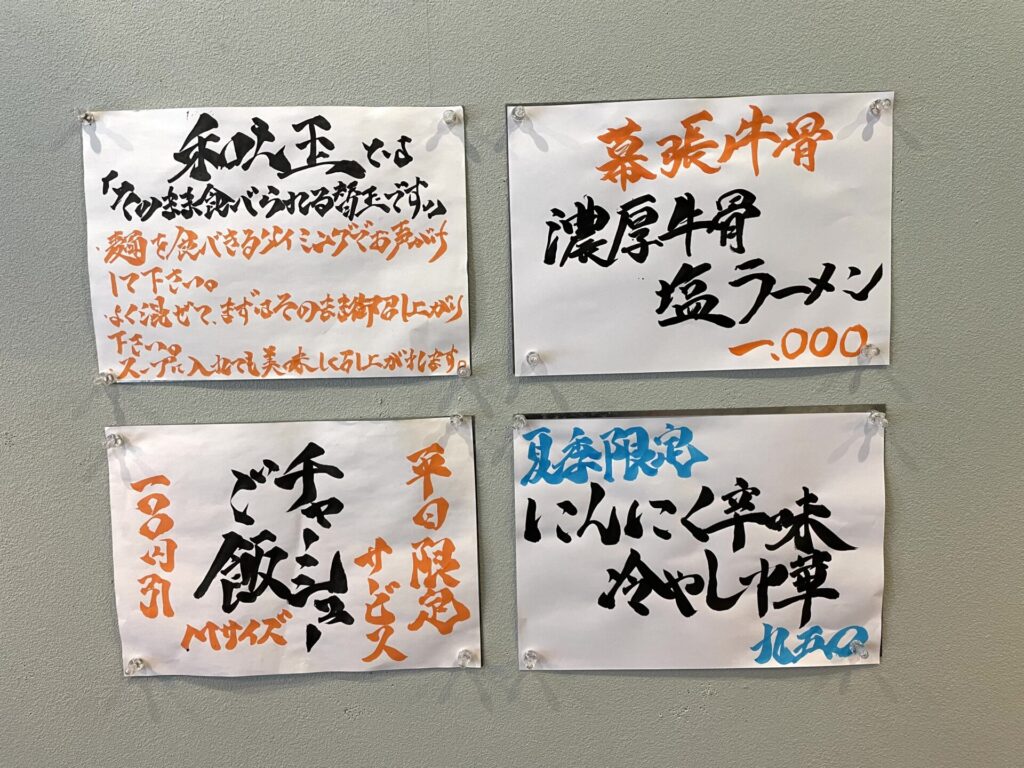 和え玉とは
「そのまま食べられる替玉です」
麺を食べきるタイミングでお声がけ
して下さい。
よく混ぜて、まずはそのまま御召し上がり
下さい。
スープに入れても美味しく召し上がれます。
幕張牛骨
濃厚牛骨
塩ラーメン
一、000
平日限定
サービス
チャーシュー
ご飯
Mサイズ
一〇〇円引
夏季限定
にんにく辛味
冷やし中華
九五〇